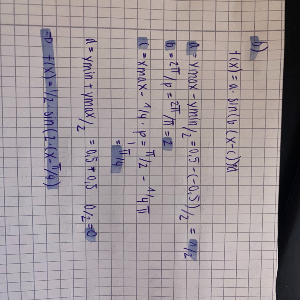 b)
f(x)=a· sin(b (x-c))+d
a = ymax - ymin/2 = 0.5 - (-0.5)/2 = 1/2
b = 2π/p = 2π/π = 2
c = xmax - 1/4 · p = π/2 - 1/4 π
= π/4
d = ymin + ymax/2 = 0.5 + 0.5 0/2 = 0
=> f(x) = 1/2 sin(2·(x-π/4)